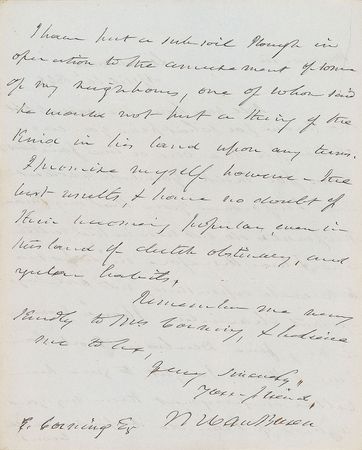 I have put a subsoil Plough in
operation to the amusement of some
of my neighbours, one of whom said
he would not put a thing of the
kind in his land upon any terms.
I promise myself however the
best results, & have no doubt of
their becoming popular, even in
this land of dutch obstinacy, and
regular habits.
Remember me very
kindly to Mrs Corning, & believe
me to be,
Very sincerely
Your friend,
M Van Buren
E. Corning Esq